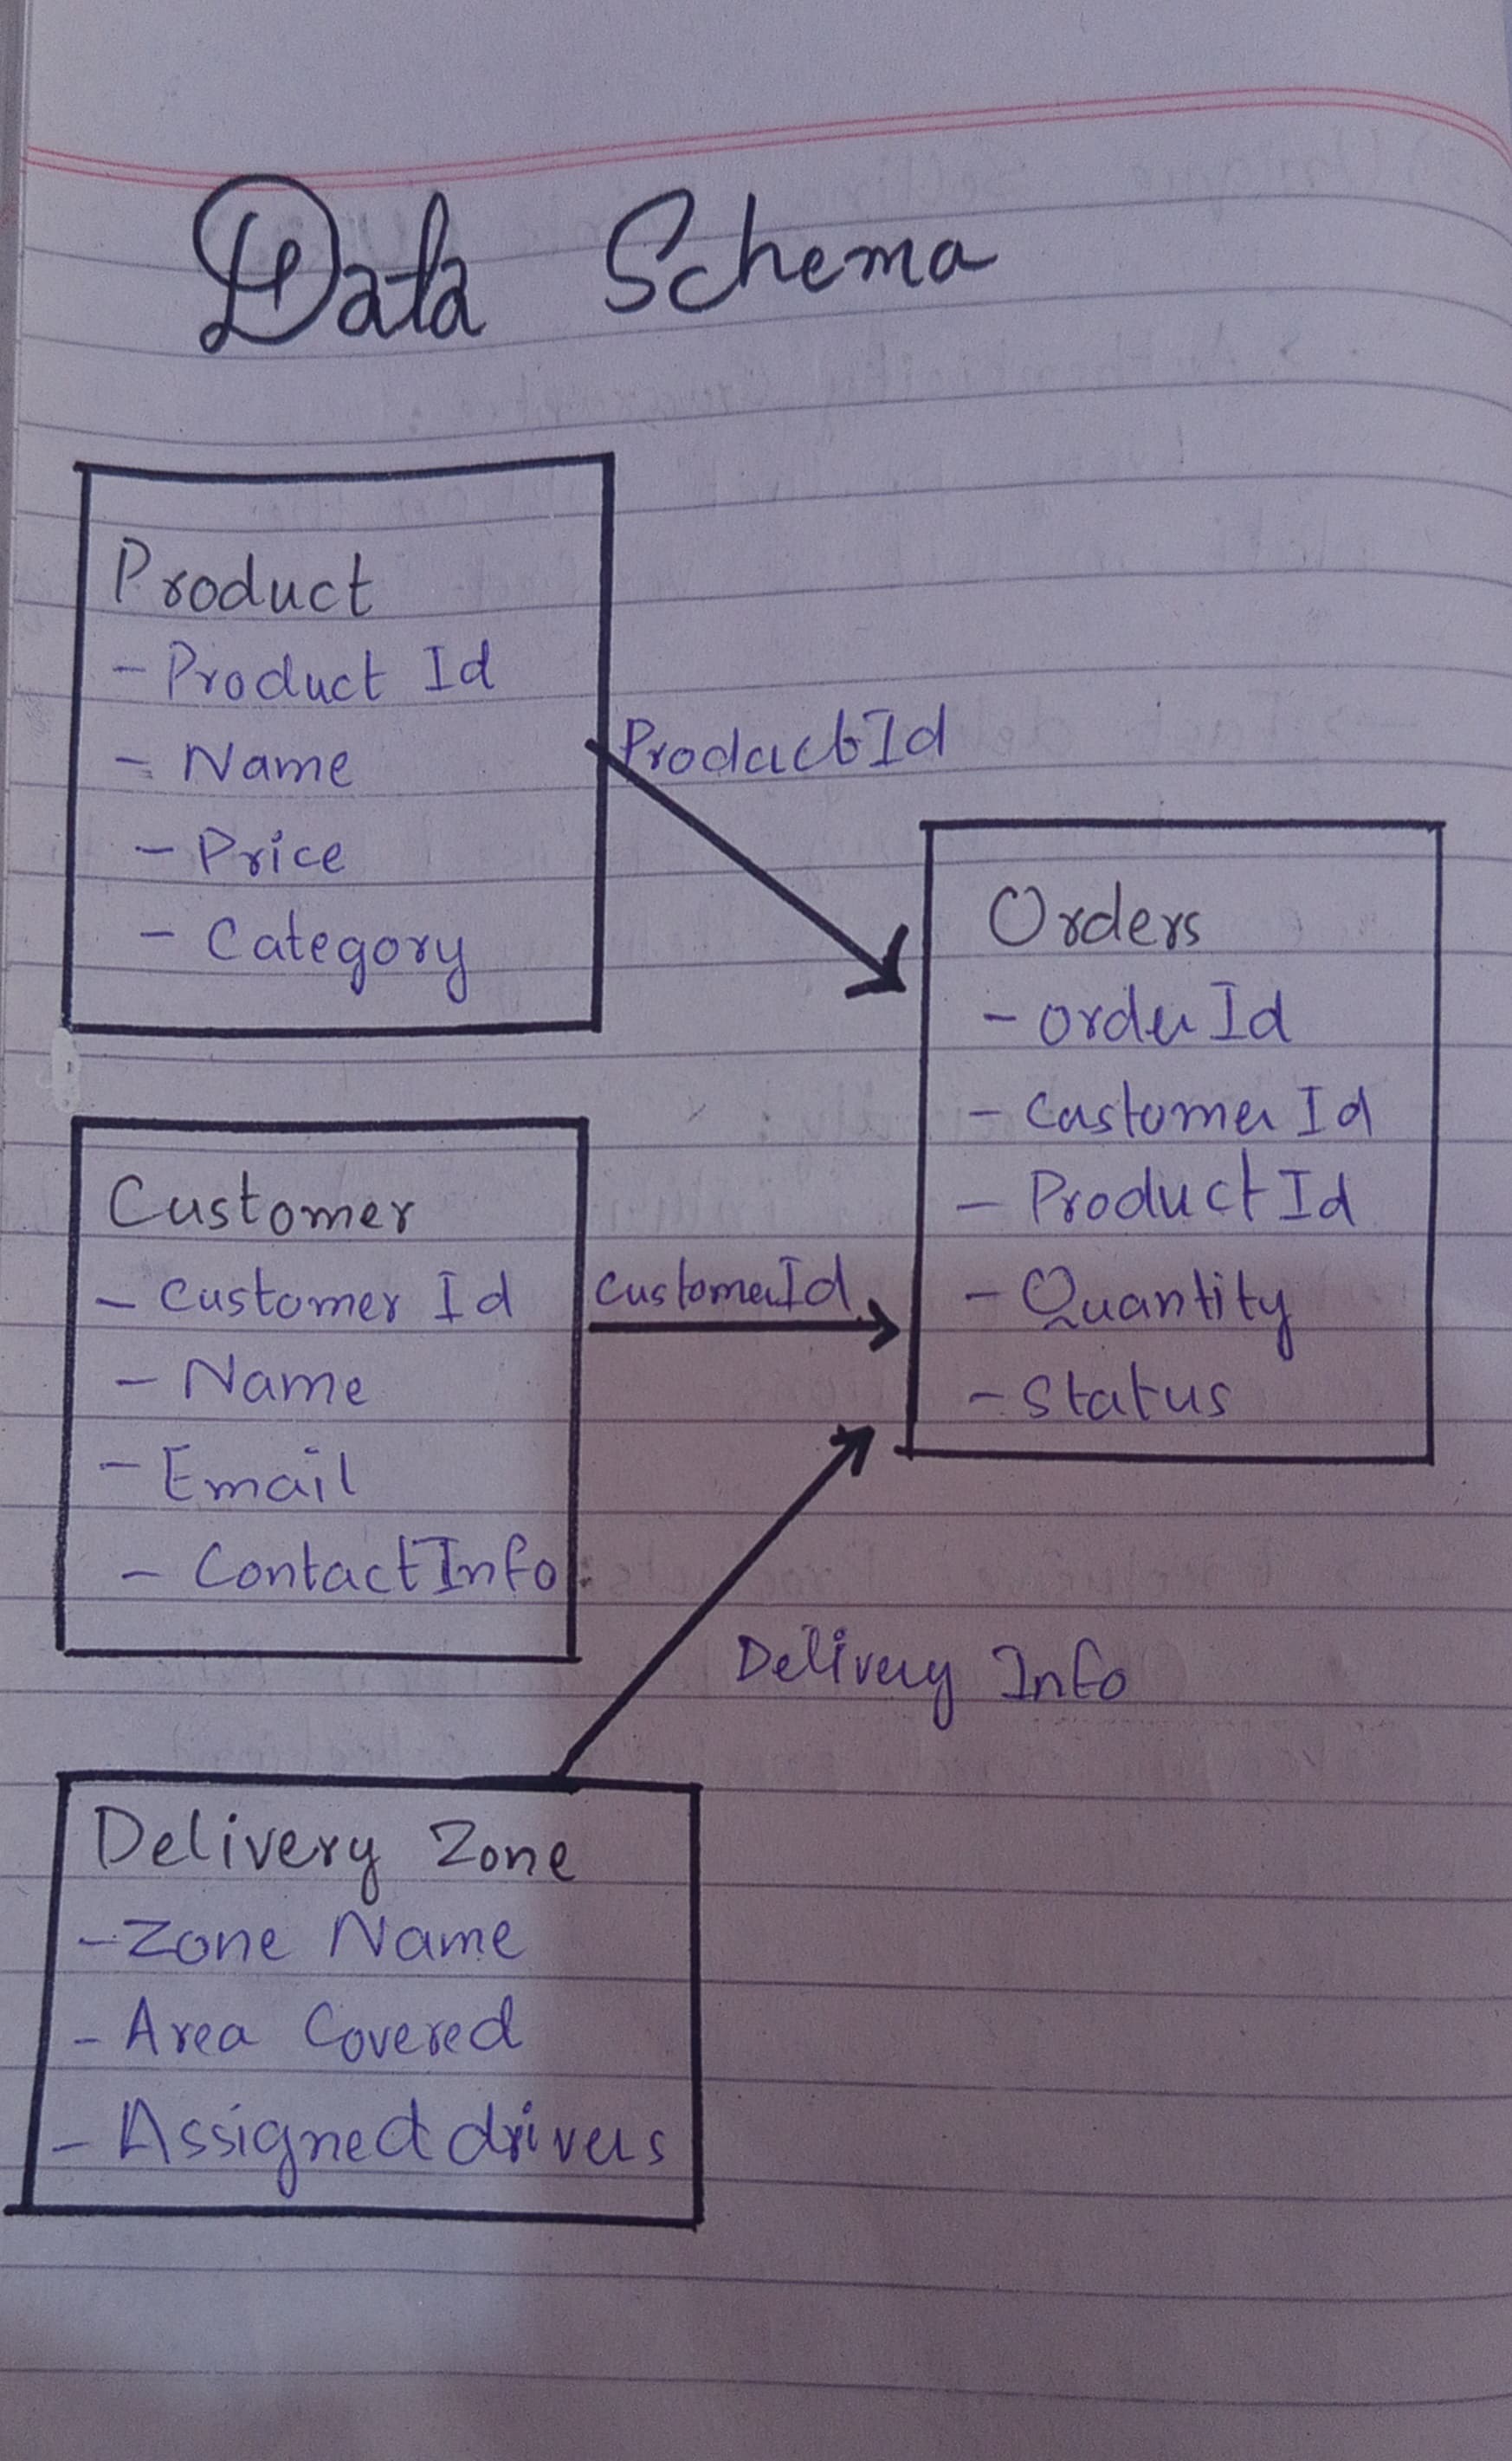 Data Schema
Product
- Product Id
- Name
- Price
- Category
ProductId
Orders
- Order Id
- Customer Id
- Product Id
- Quantity
- Status
Customer
- Customer Id
- Name
- Email
- ContactInfo
CustomerId
Delivery Info
Delivery Zone
- Zone Name
- Area Covered
- Assigned drivers